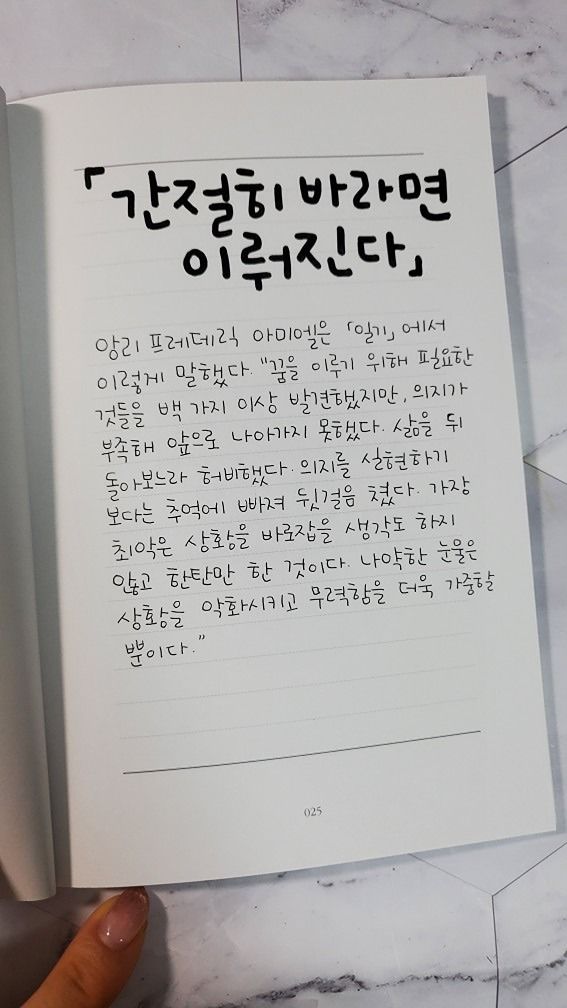 「간절히 바라면
이뤄진다」
앙리 프레데릭 아미엘은 「일기」에서
이렇게 말했다. "꿈을 이루기 위해 필요한
것들을 백 가지 이상 발견했지만, 의지가
부족해 앞으로 나아가지 못했다. 삶을 뒤
돌아보느라 허비했다. 의지를 실현하기
보다는 추억에 빠져 뒷걸음 쳤다. 가장
최악은 상황을 바로잡을 생각도 하지
않고 한탄만 한 것이다. 나약한 눈물은
상황을 악화시키고 무력함을 더욱 가중할
뿐이다."
025